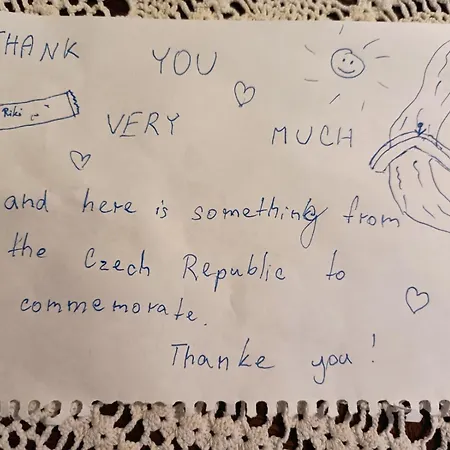 THANK YOU
Riki
VERY MUCH
and here is something from
the Czech Republic to
commemorate.
Thanke you!